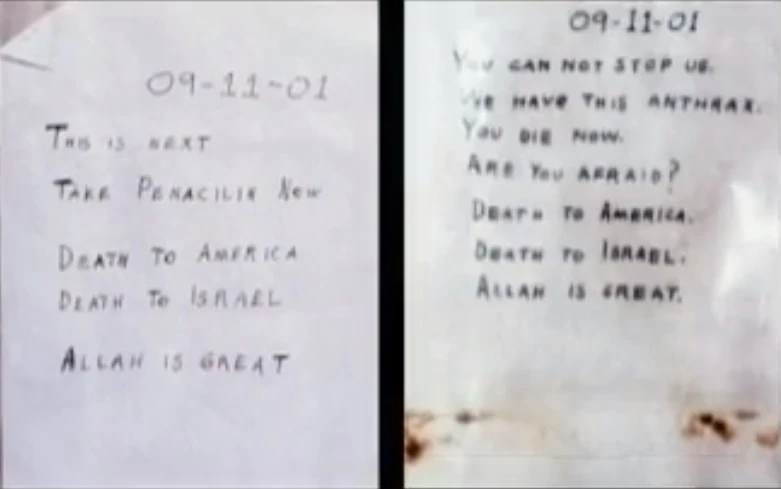 09-11-01
THIS IS NEXT
TAKE PENACILIN NOW
DEATH TO AMERICA
DEATH TO ISRAEL
ALLAH IS GREAT
09-11-01
YOU CAN NOT STOP US.
WE HAVE THIS ANTHRAX.
YOU DIE NOW.
ARE YOU AFRAID?
DEATH TO AMERICA.
DEATH TO ISRAEL.
ALLAH IS GREAT.